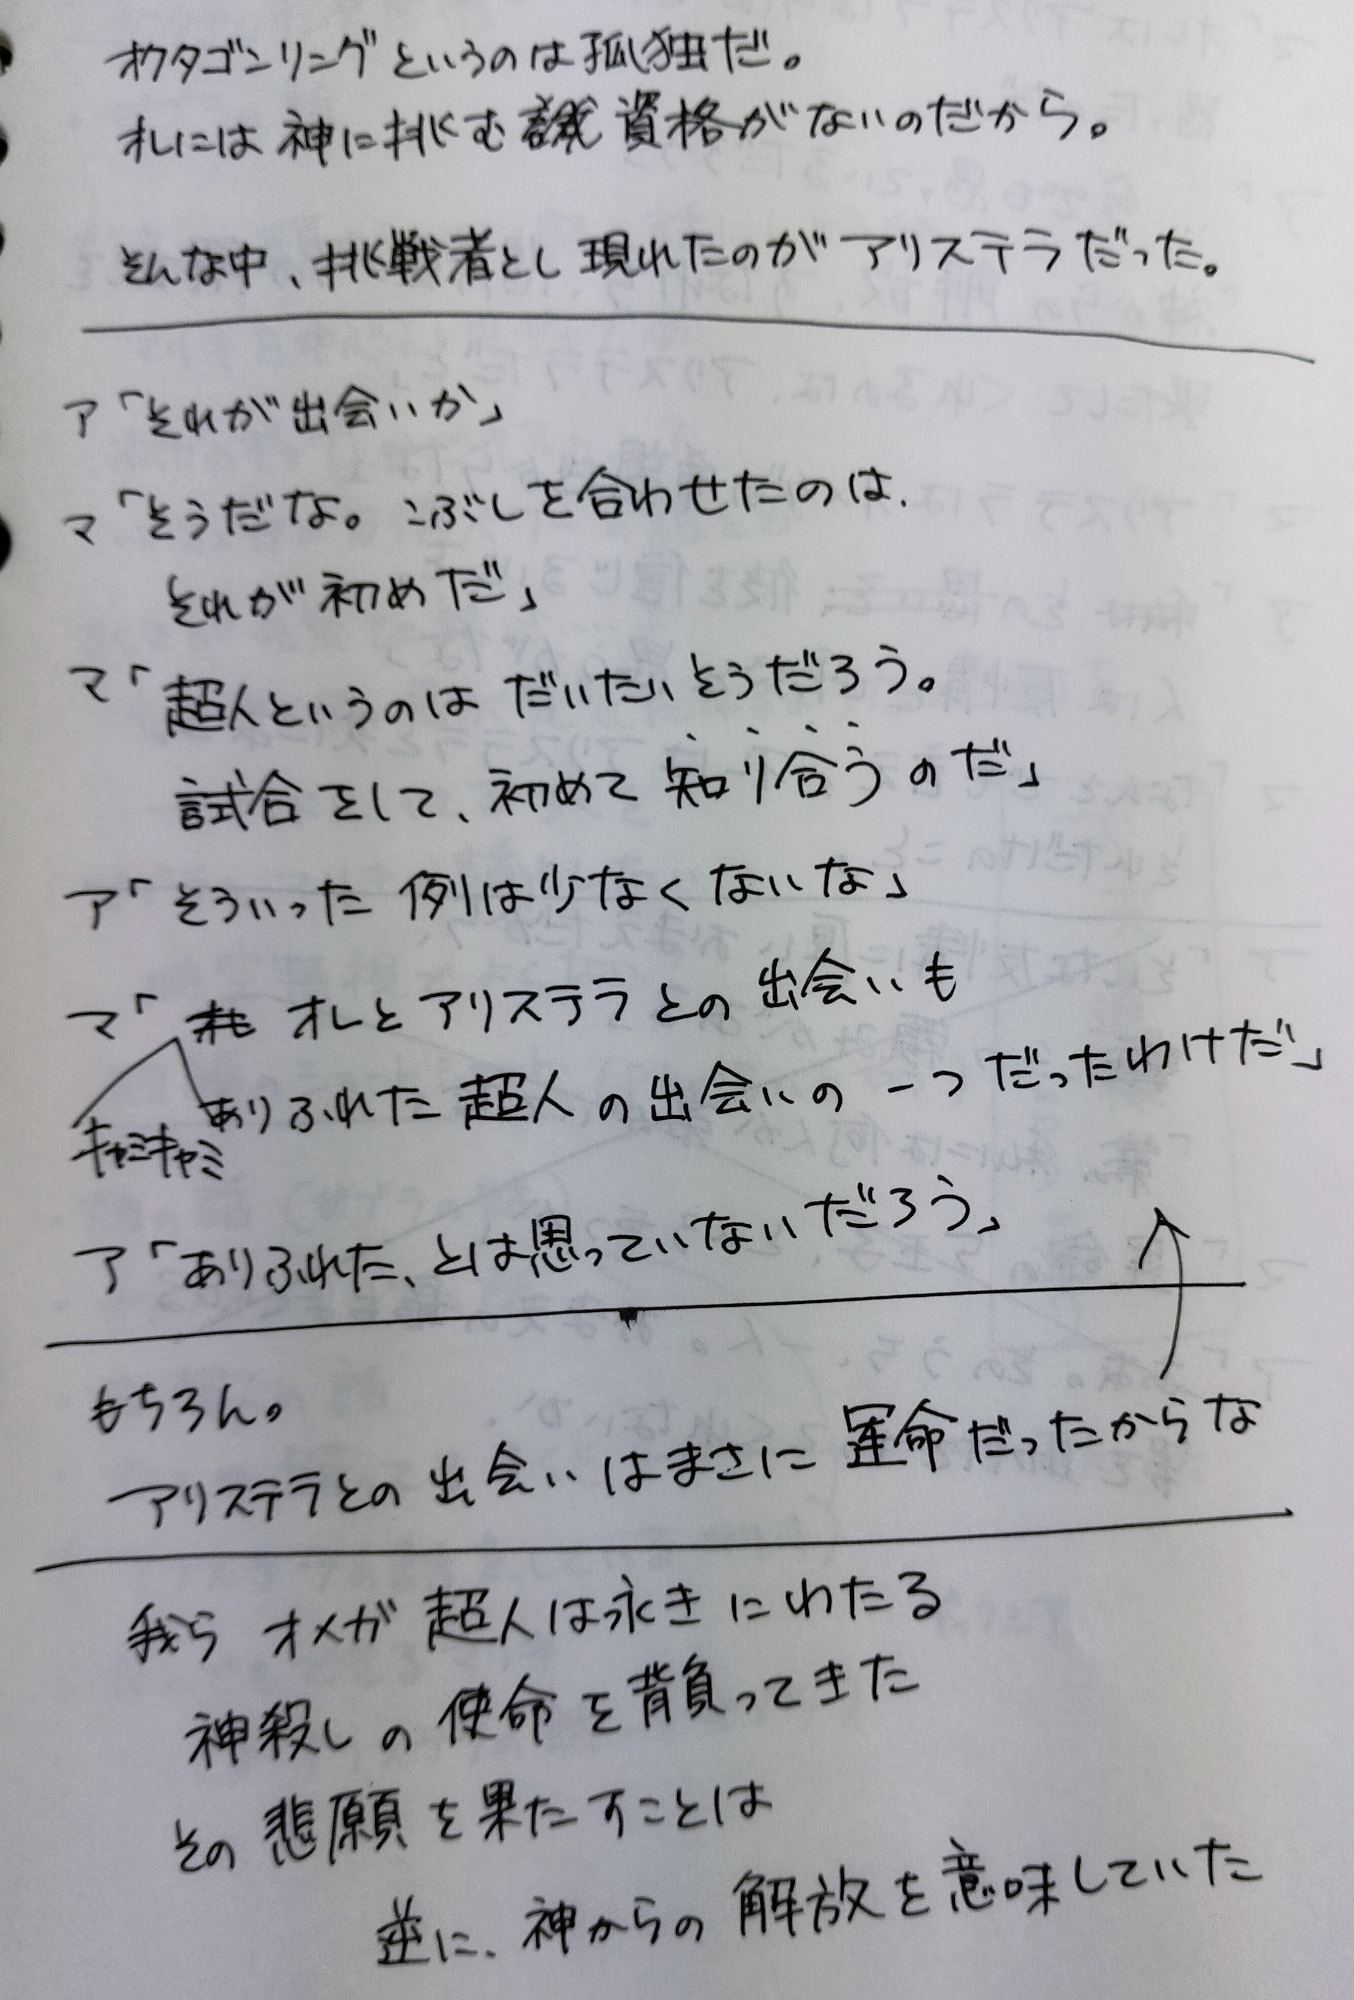 オクタゴンリングというのは孤独だ。
オレには神に挑む資格がないのだから。
そんな中、挑戦者とし現れたのがアリステラだった。
ア「それが出会いか」
マ「そうだな。こぶしを合わせたのは、
それが初めだ」
マ「超人というのはだいたいそうだろう。
試合をして、初めて知り合うのだ」
ア「そういった例は少なくないな」
マ「オレとアリステラとの出会いも
ありふれた超人の出会いの一つだったわけだ」
キャミキャミ
ア「ありふれた、とは思っていないだろう」
もちろん。
アリステラとの出会いはまさに運命だったからな
我らオメガ超人は永きにわたる
神殺しの使命を背負ってきた
その悲願を果たすことは
逆に、神からの解放を意味していた